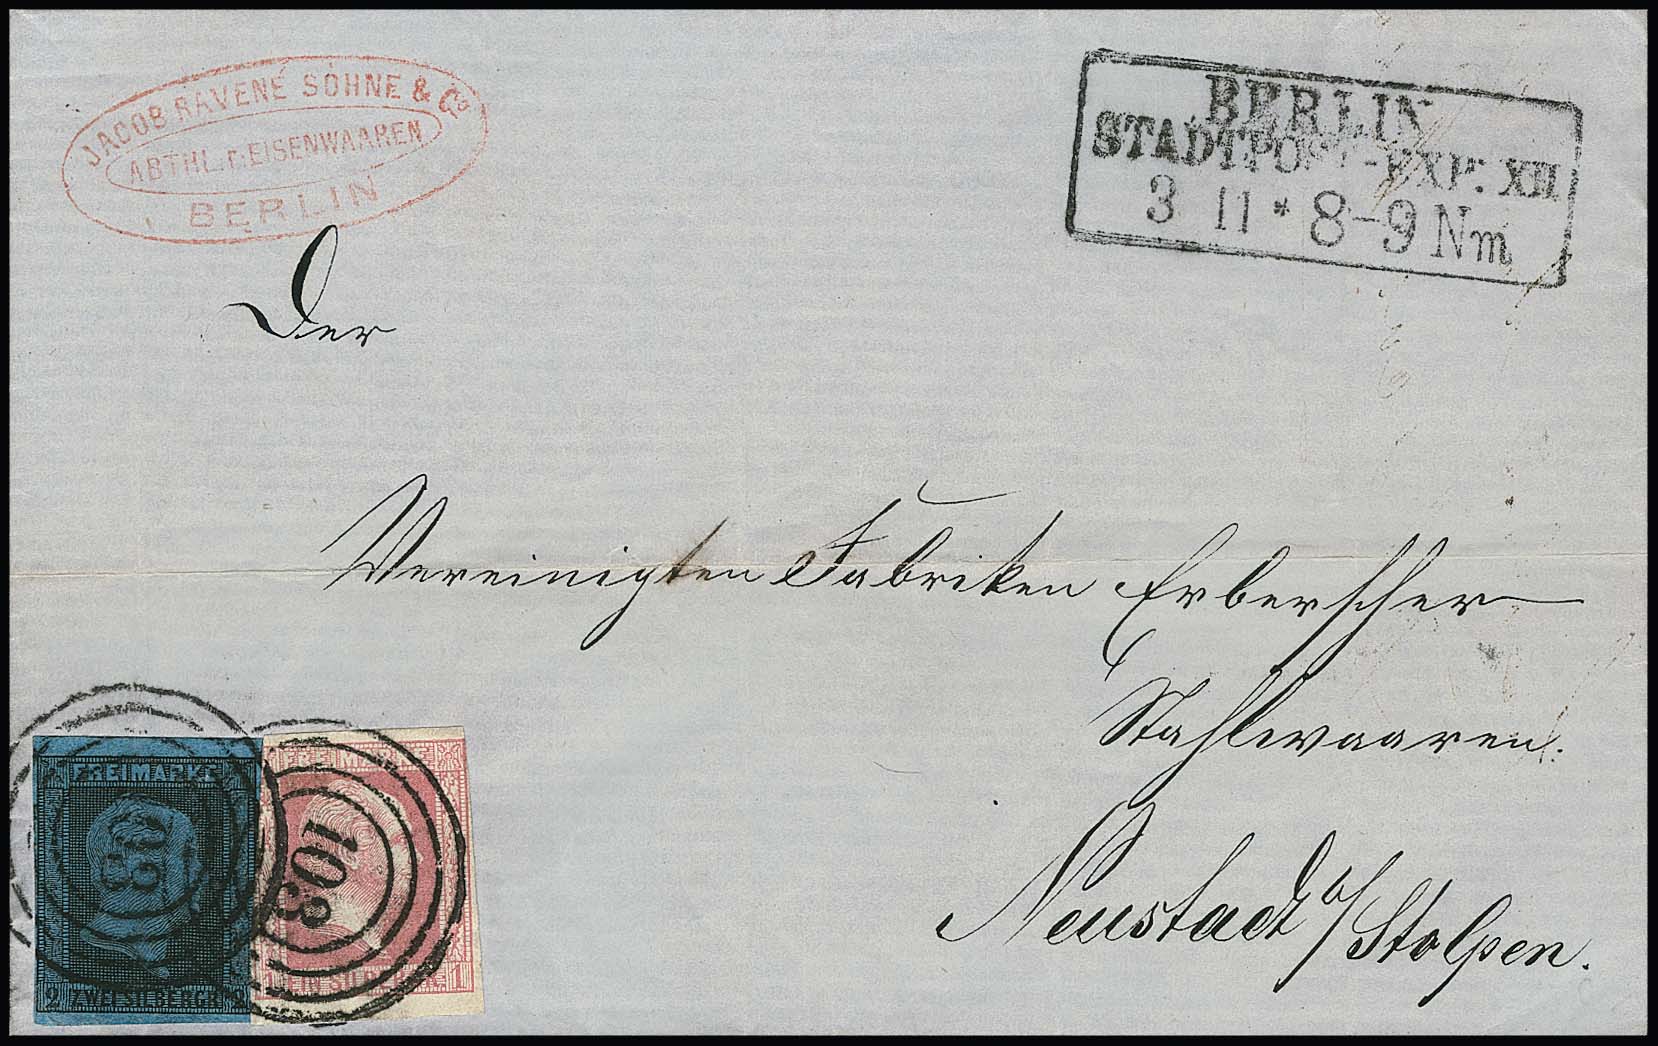 JACOB RAVENÉ SÖHNE & Co
ABTHL. F. EISENWAAREN
BERLIN
BERLIN
STADTPOST-EXP. XII.
3 11 * 8-9 Nm
Der
Vereinigten Fabriken Erberscher
Stahlwaaren.
Neustadt b/Stolpen.
FREIMARKE
2 ZWEI SILBERGR. 2
FREIMARKE
103
1 EIN SILBERGR. 1